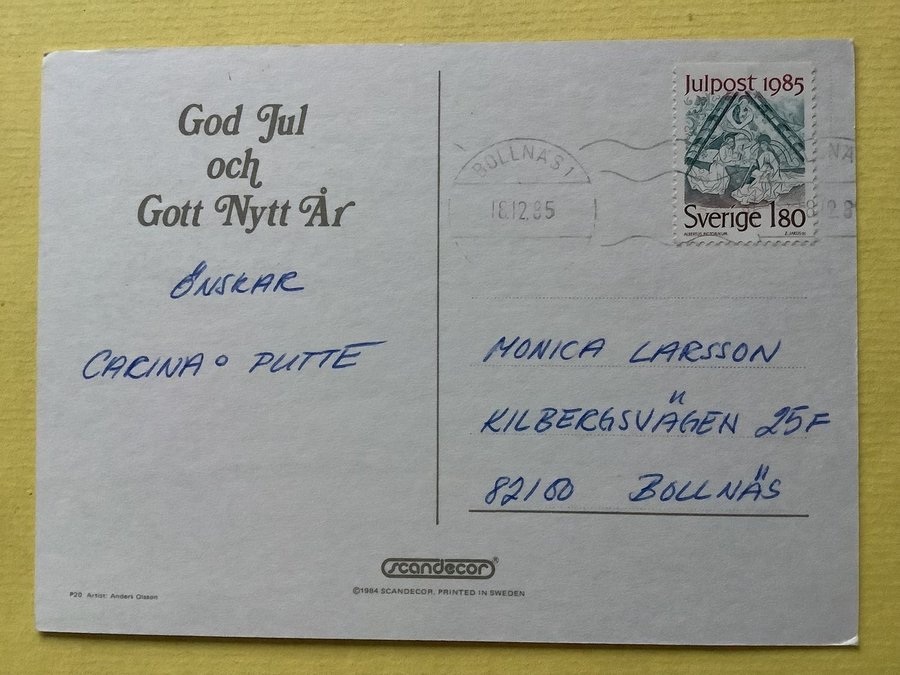 God Jul
och
Gott Nytt År
ÖNSKAR
CARINA o PUTTE
Julpost 1985
Sverige 180
ALBERTUS PICTOR
BOLLNÄS 1
18.12.85
NÄ
MONICA LARSSON
KILBERGSVÄGEN 25F
82100 BOLLNÄS
scandecor®
©1984 SCANDECOR, PRINTED IN SWEDEN
P20 Artist: Anders Olsson